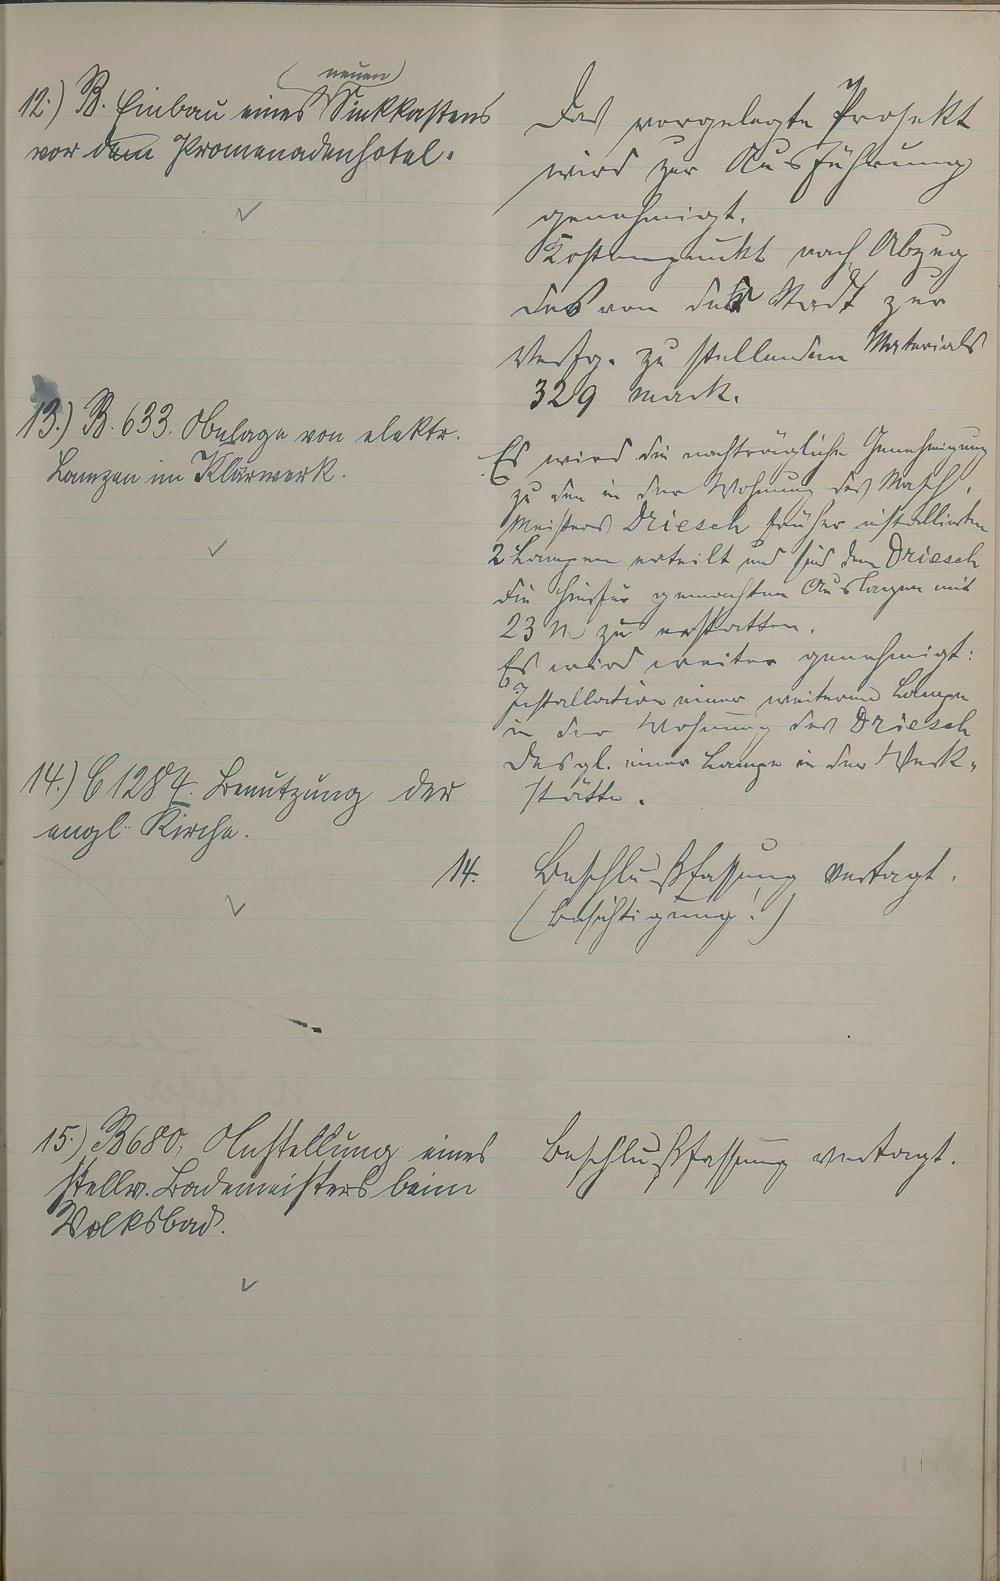 12.) B. Einbau eines (neuen) Sinkkastens
vor dem Promenadenhotel.
Das vorgelegte Projekt
wird zur Ausführung
genehmigt.
Kostenpunkt nach Abzug
des von der Stadt zur
Verfg. zu stellenden Materials
329 Mark.
13.) B. 633. Anlage von elektr.
Lampen im Klärwerk.
Es wird die nachträgliche Genehmigung
zu den in der Wohnung des Masch.
Meisters Driesch früher installierten
2 Lampen erteilt und sind dem Driesch
die hierfür gemachten Auslagen mit
23 M zu erstatten.
Es wird weiter genehmigt:
Installation einer weiteren Lampe
in der Wohnung des Driesch
desgl. einer Lampe in der Werk-
stätte.
14.) C 1284. Benutzung der
engl. Kirche.
14. Beschlußfassung vertagt.
(Besichtigung!)
15.) B 680. Anstellung eines
stellv. Bademeisters beim
Volksbad.
Beschlußfassung vertagt.